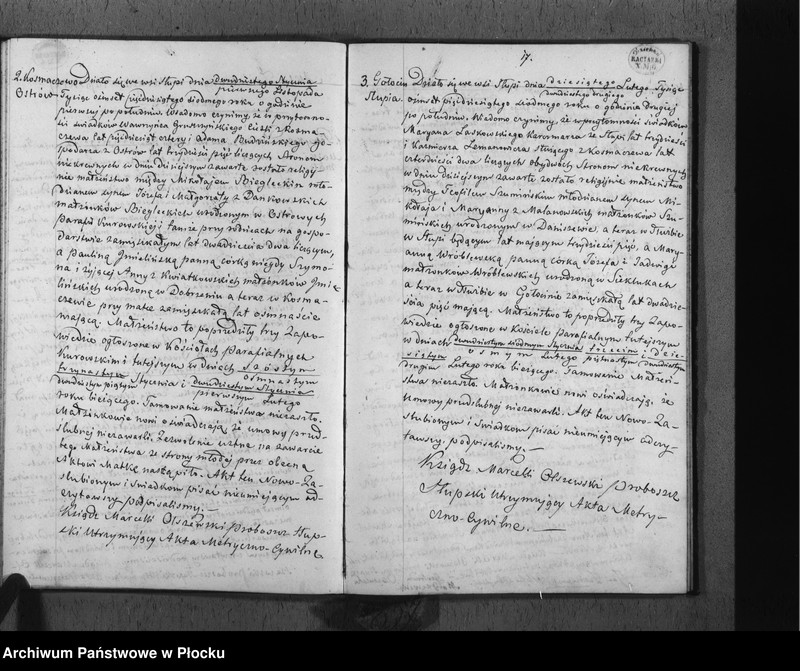 2. Kosmaczewo Działo się we wsi Słupi dnia dwudziestego Stycznia
Ostrów pierwszego Listopada
Tysiąc ośmset pięćdziesiątego siódmego roku o godzinie
pierwszej po południu. Wiadomo czynimy, że w przytomno-
ści świadków Wawrzyńca Cieśli z Kosma-
czewa lat pięćdziesiąt cztery i Adama Go-
spodarza z Ostrów lat trzydzieści pięć liczących Stronom
niekrewnych w dniu dzisiejszym zawarte zostało religij-
nie małżeństwo między Mikołajem Biegleckim mło-
dzianem synem Józefa i Małgorzaty z Dankowskich
małżonków Biegleckich urodzonym w Ostrowych
parafii Kurowskiej i tamże przy rodzicach na gospo-
darstwie zamieszkałym lat dwadzieścia dwa liczącym,
a Pauliną Jmielińską panną córką niegdy Szymo-
na i żyjącej Anny z Kwiatkowskich małżonków Jmie-
lińskich urodzoną w Dobrzeniu a teraz w Kosma-
czewie przy matce zamieszkałą lat ośmnaście
mającą. Małżeństwo to poprzedziły trzy Zapo-
wiedzie ogłoszone w Kościołach parafialnych
Kurowskim i tutejszym w dniach szóstym
ośmnastym
trzynastym dwudziestym piątym Stycznia i dwudziestym Stycznia
pierwszym Lutego
roku bieżącego. Tamowanie małżeństwa nie zaszło.
Małżonkowie nowi oświadczają że umowy przed-
ślubnej niezawarli. Zezwolenie ustne na zawarcie
tego Małżeństwa ze strony młodej przez obecną
Aktowi Matkę nastąpiło. Akt ten Nowo-Za-
ślubionym i Świadkom pisać nieumiejącym od-
czytawszy podpisaliśmy.
Xiądz Marcelli Olszewski Proboszcz Słup-
ski Utrzymujący Akta Metryczno-Cywilne
17.
3. Gołocin Działo się we wsi Słupi dnia dziesiątego Lutego Tysiąc
dwudziestego drugiego
Słupia. ośmset pięćdziesiątego siódmego roku o godzinie drugiej
po południu. Wiadomo czynimy, że w przytomności świadków
Maryana Laskowskiego Karczmarza ze Słupi lat trzydzieści
i Kazimierza Lemanowicza służącego z Kosmaczewa lat
czterdzieści dwa liczących obydwóch Stronom niekrewnych
w dniu dzisiejszym zawarte zostało religijnie małżeństwo
między Teofilem Szumińskim młodzianem synem Mi-
kołaja i Maryanny z Malanowskich małżonków Szu-
mińskich urodzonym w Daniszewie, a teraz w Służbie
w Słupi będącym lat mającym trzydzieści pięć, a Mary-
anną Wróblewską panną córką Józefa i Jadwigi
małżonków Wróblewskich urodzoną w Sekłukach
a teraz w Służbie w Gołocinie zamieszkałą lat dwadzie-
ścia pięć mającą. Małżeństwo to poprzedziły trzy Zapo-
wiedzie ogłoszone w Kościele parafialnym tutejszym
w dniach dwudziestym siódmym Stycznia trzecim i dzie-
ósmym Lutego piętnastym dwudziestym
siątym
drugim Lutego roku bieżącego. Tamowanie Małżeń-
stwa niezaszło. Małżonkowie nowi oświadczają, że
Umowy przedślubnej niezawarli. Akt ten Nowo-Za-
ślubionym i Świadkom pisać nieumiejącym odczy-
tawszy podpisaliśmy.
Xiądz Marcelli Olszewski Proboszcz
Słupski Utrzymujący Akta Metry-
czno-Cywilne.
Archiwum Państwowe w Płocku